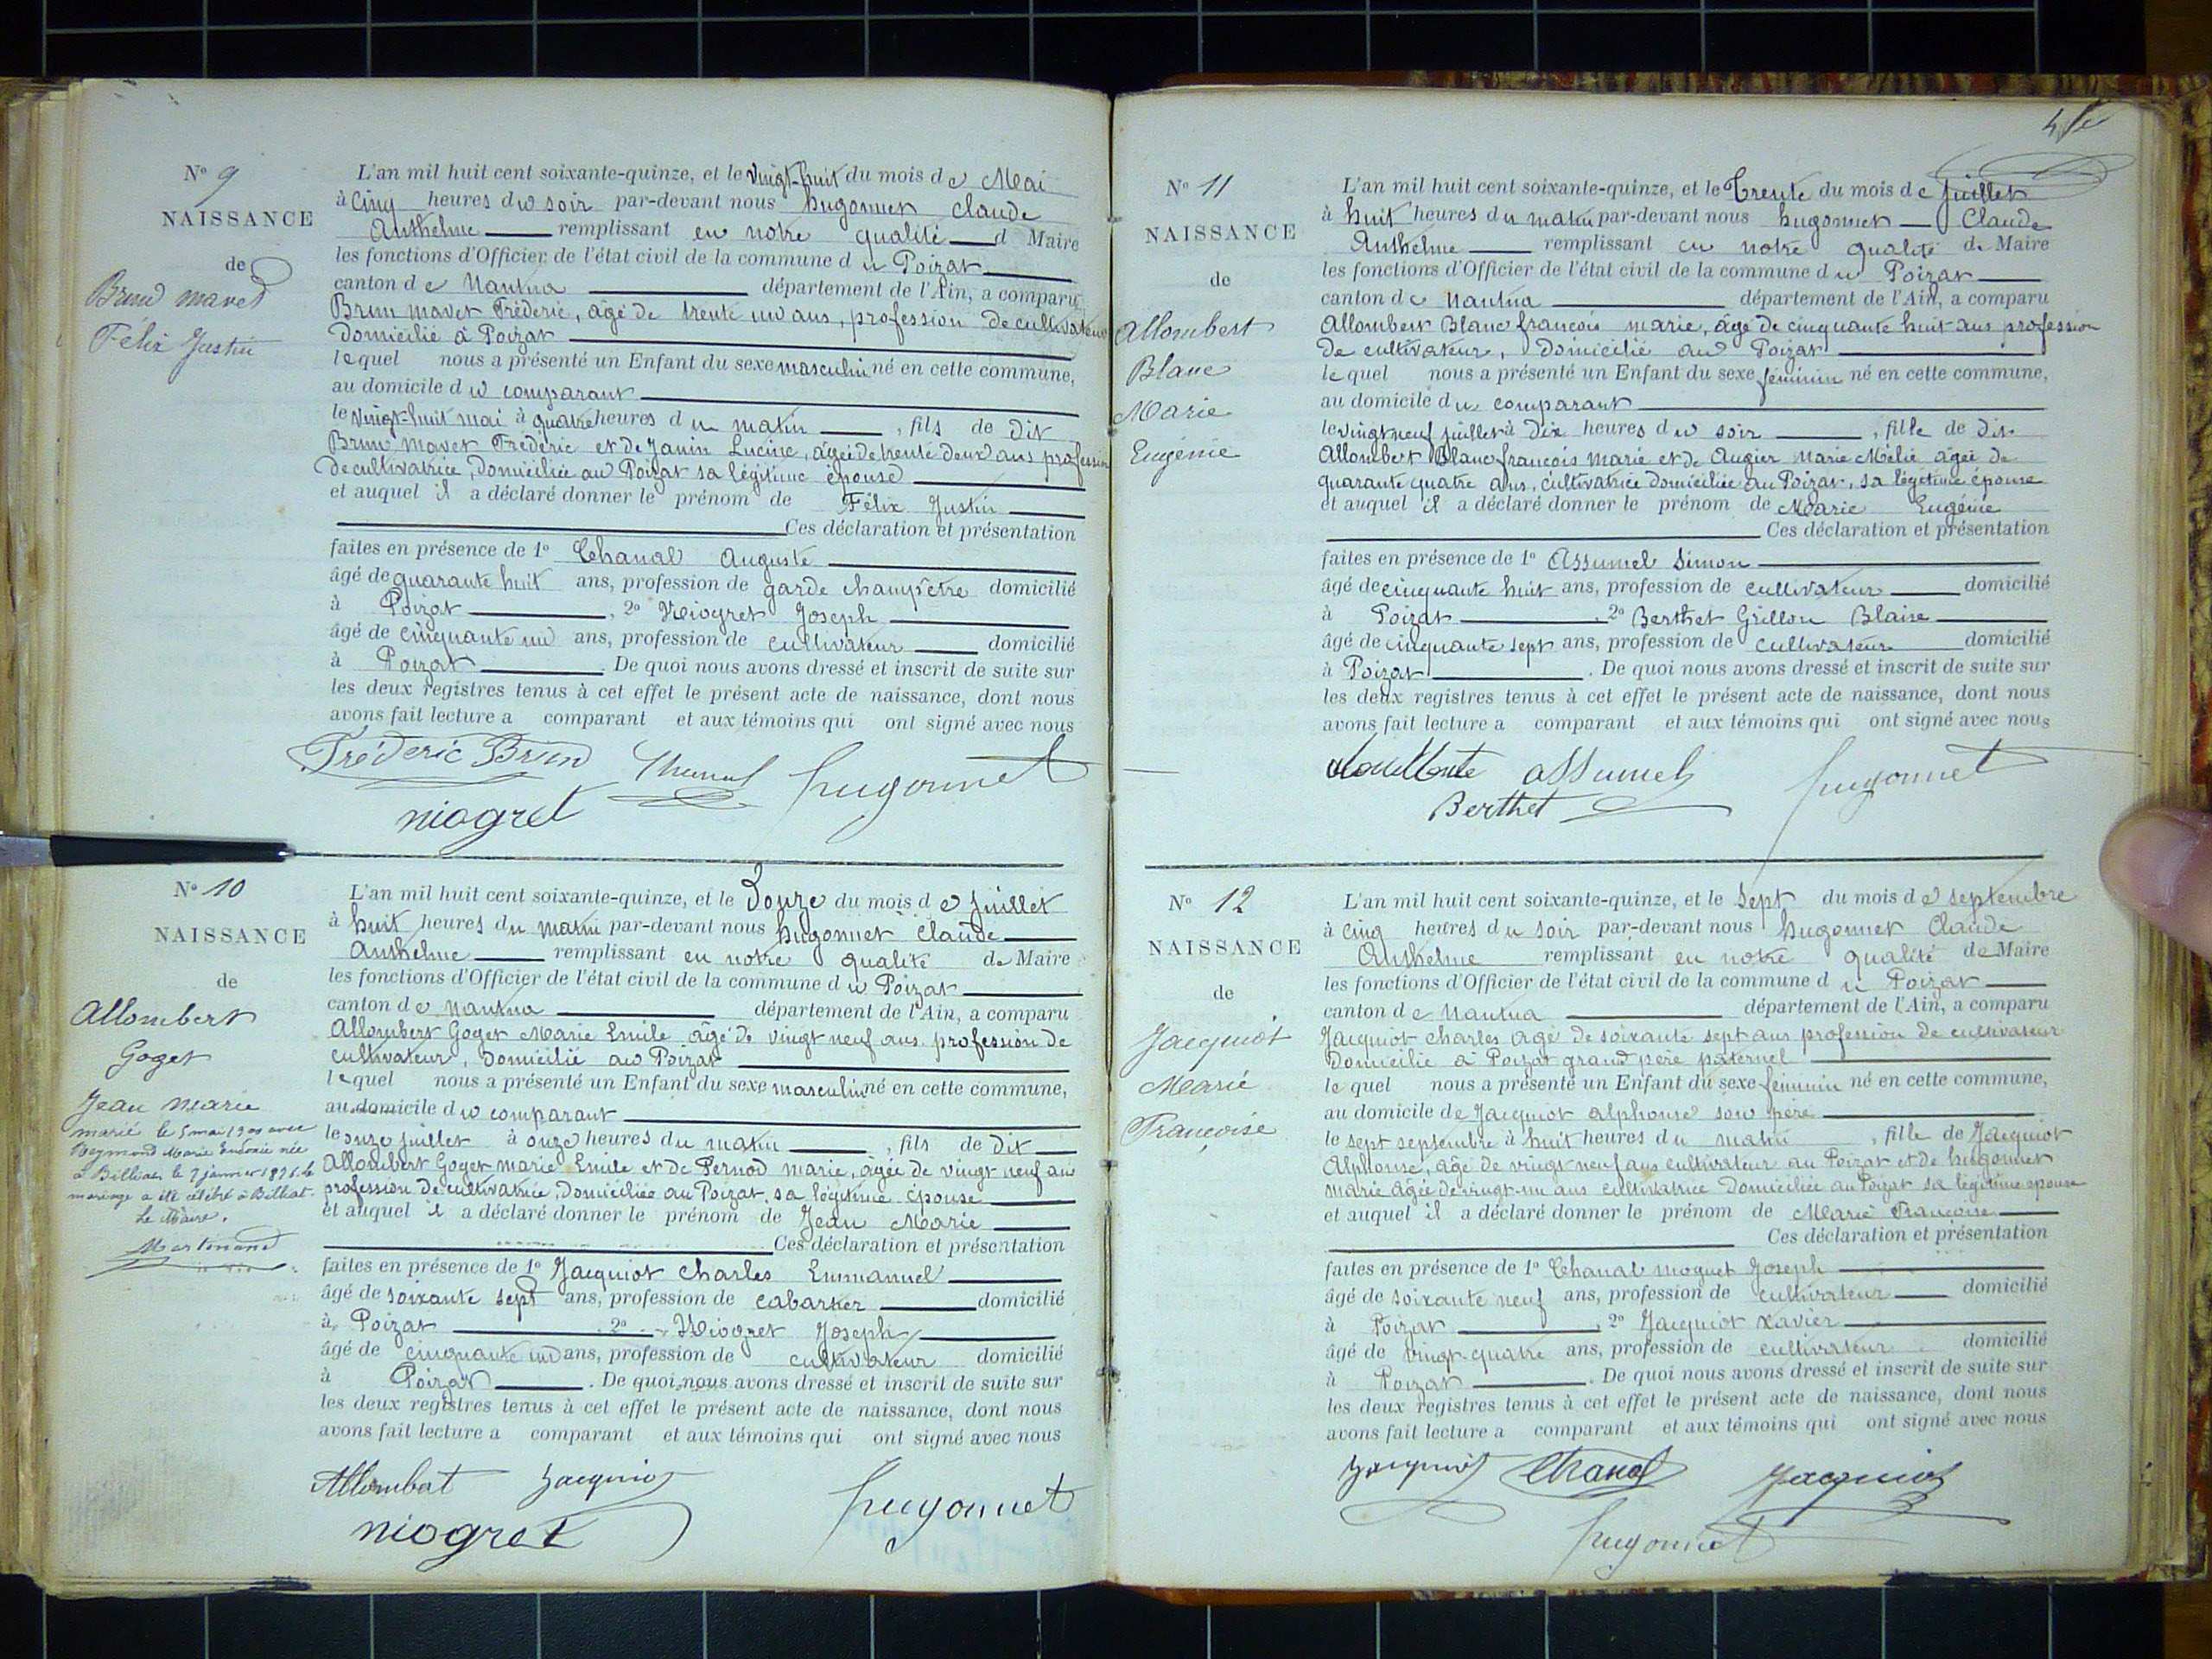 N° 9
NAISSANCE
de
Brun mavet
Félix Justin
L'an mil huit cent soixante-quinze, et le vingt-huit du mois de Mai
à cinq heures du soir par-devant nous hugonnet claude
Anthelme remplissant en notre qualité d Maire
les fonctions d'Officier de l'état civil de la commune du Poizat
canton de Nantua département de l'Ain, a comparu
Brun mavet Fréderic, âgé de trente un ans, profession de cultivateur
domicilié à Poizat
lequel nous a présenté un Enfant du sexe masculin né en cette commune,
au domicile du comparant
le vingt-huit mai à quatre heures du matin, fils de dit
Brun Mavet Fréderic et de Janin Lucine, âgée de trente deux ans profession
de cultivatrice, domiciliée au Poizat sa légitime épouse
et auquel il a déclaré donner le prénom de Félix Justin
Ces déclaration et présentation
faites en présence de 1° Chanal Auguste
âgé de quarante huit ans, profession de garde champêtre domicilié
à Poizat, 2° Niogret Joseph
âgé de cinquante un ans, profession de cultivateur domicilié
à Poizat. De quoi nous avons dressé et inscrit de suite sur
les deux registres tenus à cet effet le présent acte de naissance, dont nous
avons fait lecture a comparant et aux témoins qui ont signé avec nous
Fréderic Brun Chanal hugonnet
niogret
N° 10
NAISSANCE
de
Allombert
Goget
Jean Marie
marié le 5 mai avec
Reymond Marie née
à Billiat le 7 janvier le
mariage a été célébré à Billiat.
Le Maire,
L'an mil huit cent soixante-quinze, et le Douze du mois de Juillet
à huit heures du matin par-devant nous hugonnet claude
Anthelme remplissant en notre qualité de Maire
les fonctions d'Officier de l'état civil de la commune du Poizat
canton de Nantua département de l'Ain, a comparu
Allombert Goget Marie Emile âgé de vingt neuf ans profession de
cultivateur, domicilié au Poizat
lequel nous a présenté un Enfant du sexe masculin né en cette commune,
au domicile du comparant
le onze juillet à onze heures du matin, fils de dit
Allombert Goget marie Emile et de Pernod marie, âgée de vingt neuf ans
profession de cultivatrice, domiciliée au Poizat, sa légitime épouse
et auquel il a déclaré donner le prénom de Jean Marie
Ces déclaration et présentation
faites en présence de 1° Jacquiot Charles Emmanuel
âgé de soixante sept ans, profession de cabartier domicilié
à Poizat 2° Niogret Joseph
âgé de cinquante un ans, profession de cultivateur domicilié
à Poizat. De quoi nous avons dressé et inscrit de suite sur
les deux registres tenus à cet effet le présent acte de naissance, dont nous
avons fait lecture a comparant et aux témoins qui ont signé avec nous
Allombert Jacquiot hugonnet
niogret
N° 11
NAISSANCE
de
Allombert
Blanc
Marie
Eugénie
L'an mil huit cent soixante-quinze, et le Trente du mois de Juillet
à huit heures du matin par-devant nous hugonnet Claude
Anthelme remplissant en notre qualité de Maire
les fonctions d'Officier de l'état civil de la commune du Poizat
canton de Nantua département de l'Ain, a comparu
Allombert Blanc françois marie, âgé de cinquante huit ans profession
de cultivateur, domicilié au Poizat
lequel nous a présenté un Enfant du sexe féminin né en cette commune,
au domicile du comparant
le vingt neuf juillet à Dix heures du soir, fille de dit
Allombert Blanc françois marie et de Augier Marie Mélie âgée de
quarante quatre ans, cultivatrice domiciliée au Poizat, sa légitime épouse
et auquel il a déclaré donner le prénom de Marie Eugénie
Ces déclaration et présentation
faites en présence de 1° Assumel Simon
âgé de cinquante huit ans, profession de cultivateur domicilié
à Poizat, 2° Berthet Grillon Blaise
âgé de cinquante sept ans, profession de cultivateur domicilié
à Poizat. De quoi nous avons dressé et inscrit de suite sur
les deux registres tenus à cet effet le présent acte de naissance, dont nous
avons fait lecture a comparant et aux témoins qui ont signé avec nous
assumel hugonnet
Berthet
N° 12
NAISSANCE
de
Jacquiot
Marie
Françoise
L'an mil huit cent soixante-quinze, et le Sept du mois de septembre
à cinq heures du soir par-devant nous hugonnet Claude
Anthelme remplissant en notre qualité de Maire
les fonctions d'Officier de l'état civil de la commune du Poizat
canton de Nantua département de l'Ain, a comparu
Jacquiot charles agé de soixante sept ans profession de cultivateur
domicilié à Poizat grand père paternel
lequel nous a présenté un Enfant du sexe féminin né en cette commune,
au domicile de Jacquiot alphonse son père
le sept septembre à huit heures du matin, fille de Jacquiot
Alphonse, agé de vingt neuf ans cultivateur au Poizat et de hugonnet
marie agée de vingt-un ans cultivatrice domiciliée au Poizat sa légitime epouse
et auquel il a déclaré donner le prénom de Marie Françoise
Ces déclaration et présentation
faites en présence de 1° Chanal moguet Joseph
âgé de soixante neuf ans, profession de cultivateur domicilié
à Poizat, 2° Jacquiot xavier
âgé de vingt-quatre ans, profession de cultivateur domicilié
à Poizat. De quoi nous avons dressé et inscrit de suite sur
les deux registres tenus à cet effet le présent acte de naissance, dont nous
avons fait lecture a comparant et aux témoins qui ont signé avec nous
Jacquiot Chanal Jacquiot
hugonnet